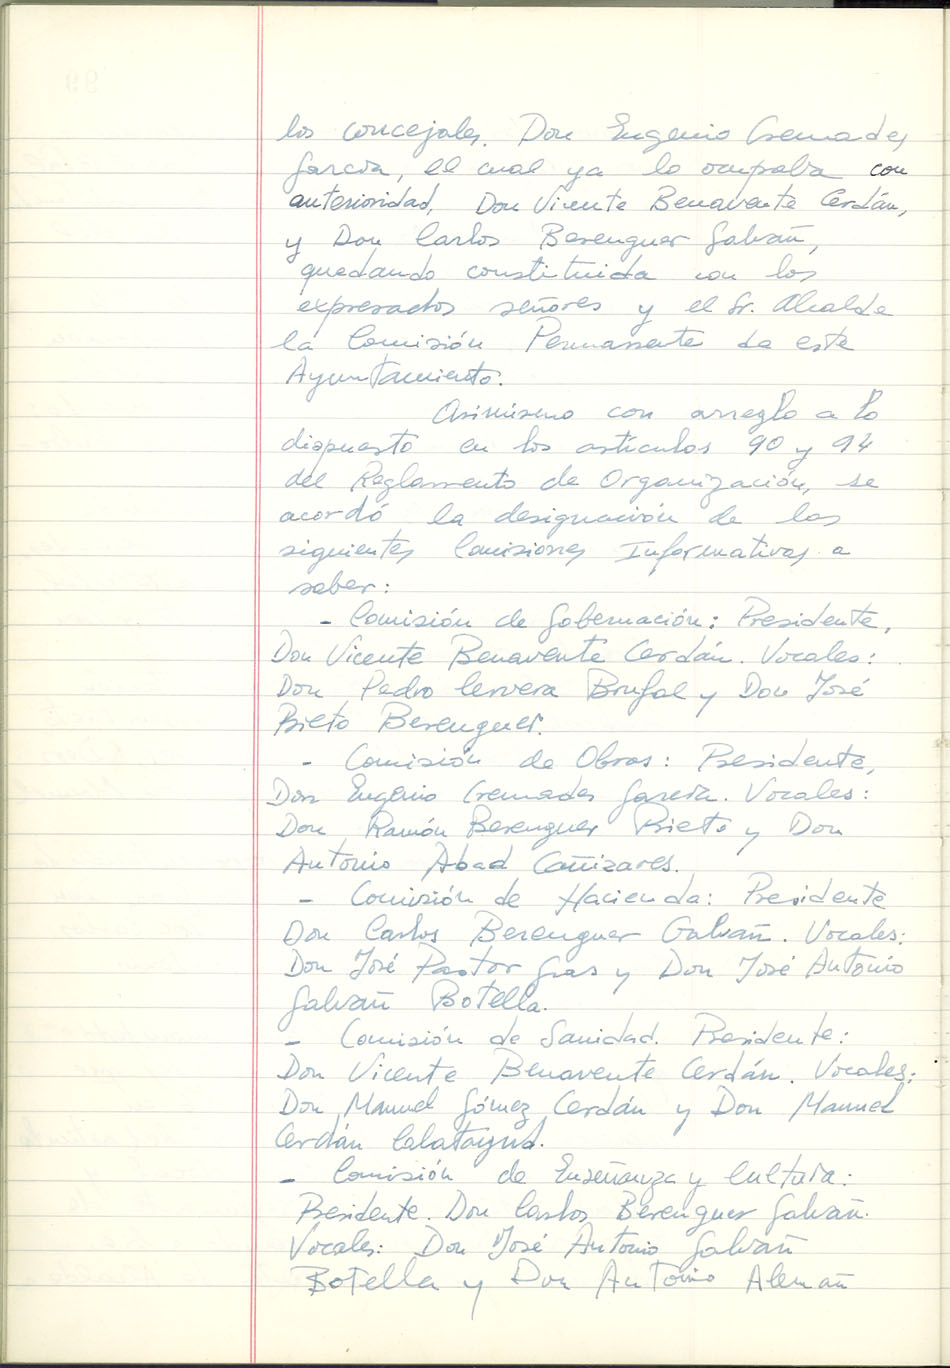 los concejales. Don Eugenio Cremades
García, el cual ya lo ocupaba con
anterioridad, Don Vicente Benavente Cerdán,
y Don Carlos Berenguer Galvañ,
quedando constituida con los
expresados señores y el Sr. Alcalde
la Comisión Permanente de este
Ayuntamiento.
Asimismo con arreglo a lo
dispuesto en los artículos 90 y 94
del Reglamento de Organización, se
acordó la designación de las
siguientes Comisiones Informativas a
saber:
- Comisión de Gobernación: Presidente,
Don Vicente Benavente Cerdán. Vocales:
Don Pedro Cervera Brufal y Don José
Prieto Berenguer.
- Comisión de Obras: Presidente,
Don Eugenio Cremades García. Vocales:
Don Ramón Berenguer Prieto y Don
Antonio Abad Cañizares.
- Comisión de Hacienda: Presidente
Don Carlos Berenguer Galvañ. Vocales:
Don José Pastor Gras y Don José Antonio
Galvañ Botella.
- Comisión de Sanidad. Presidente:
Don Vicente Benavente Cerdán. Vocales:
Don Manuel Gómez Cerdán y Don Manuel
Cerdán Calatayud.
- Comisión de Enseñanza y Cultura:
Presidente. Don Carlos Berenguer Galvañ.
Vocales: Don José Antonio Galvañ
Botella y Don Antonio Alemañ